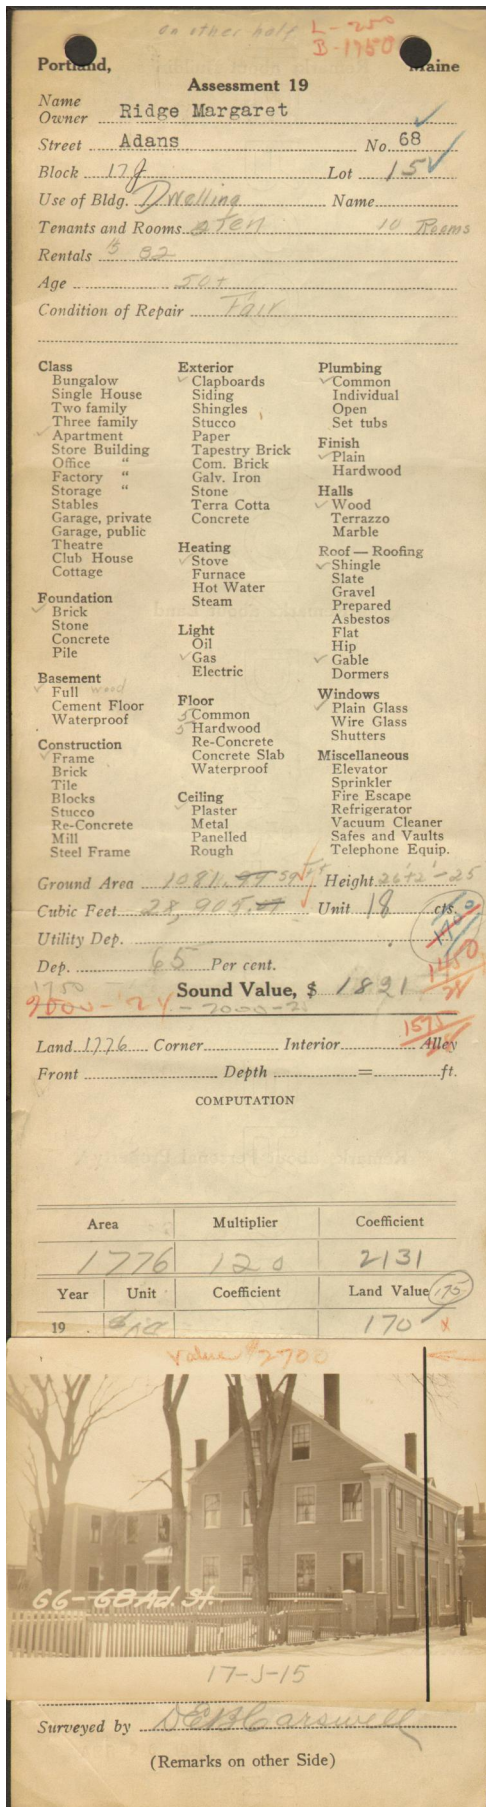 on other half L-250
B-1750
Portland, Maine
Assessment 19
Name
Owner Ridge Margaret
Street Adans No. 68
Block 17J Lot 15
Use of Bldg. Dwelling Name
Tenants and Rooms ten 10 Rooms
Rentals $ 82
Age 50+
Condition of Repair Fair
Class
Bungalow
Single House
Two family
Three family
Apartment
Store Building
Office "
Factory "
Storage "
Stables
Garage, private
Garage, public
Theatre
Club House
Cottage
Foundation
Brick
Stone
Concrete
Pile
Basement
Full wood
Cement Floor
Waterproof
Construction
Frame
Brick
Tile
Blocks
Stucco
Re-Concrete
Mill
Steel Frame
Exterior
Clapboards
Siding
Shingles
Stucco
Paper
Tapestry Brick
Com. Brick
Galv. Iron
Stone
Terra Cotta
Concrete
Heating
Stove
Furnace
Hot Water
Steam
Light
Oil
Gas
Electric
Floor
5 Common
5 Hardwood
Re-Concrete
Concrete Slab
Waterproof
Ceiling
Plaster
Metal
Panelled
Rough
Plumbing
Common
Individual
Open
Set tubs
Finish
Plain
Hardwood
Halls
Wood
Terrazzo
Marble
Roof — Roofing
Shingle
Slate
Gravel
Prepared
Asbestos
Flat
Hip
Gable
Dormers
Windows
Plain Glass
Wire Glass
Shutters
Miscellaneous
Elevator
Sprinkler
Fire Escape
Refrigerator
Vacuum Cleaner
Safes and Vaults
Telephone Equip.
Ground Area 1081. Height
Cubic Feet 28,905. Unit 18 cts.
Utility Dep.
Dep. 65 Per cent.
1750 Sound Value, $ 1821
2000-'24
Land 1776 Corner Interior Alley
Front Depth = ft.
COMPUTATION
Area Multiplier Coefficient
1776 120 2131
Year Unit Coefficient Land Value 175
19 170 x
Value $2700
66-68 Ad. St.
17-J-15
Surveyed by D E B Carswell
(Remarks on other Side)